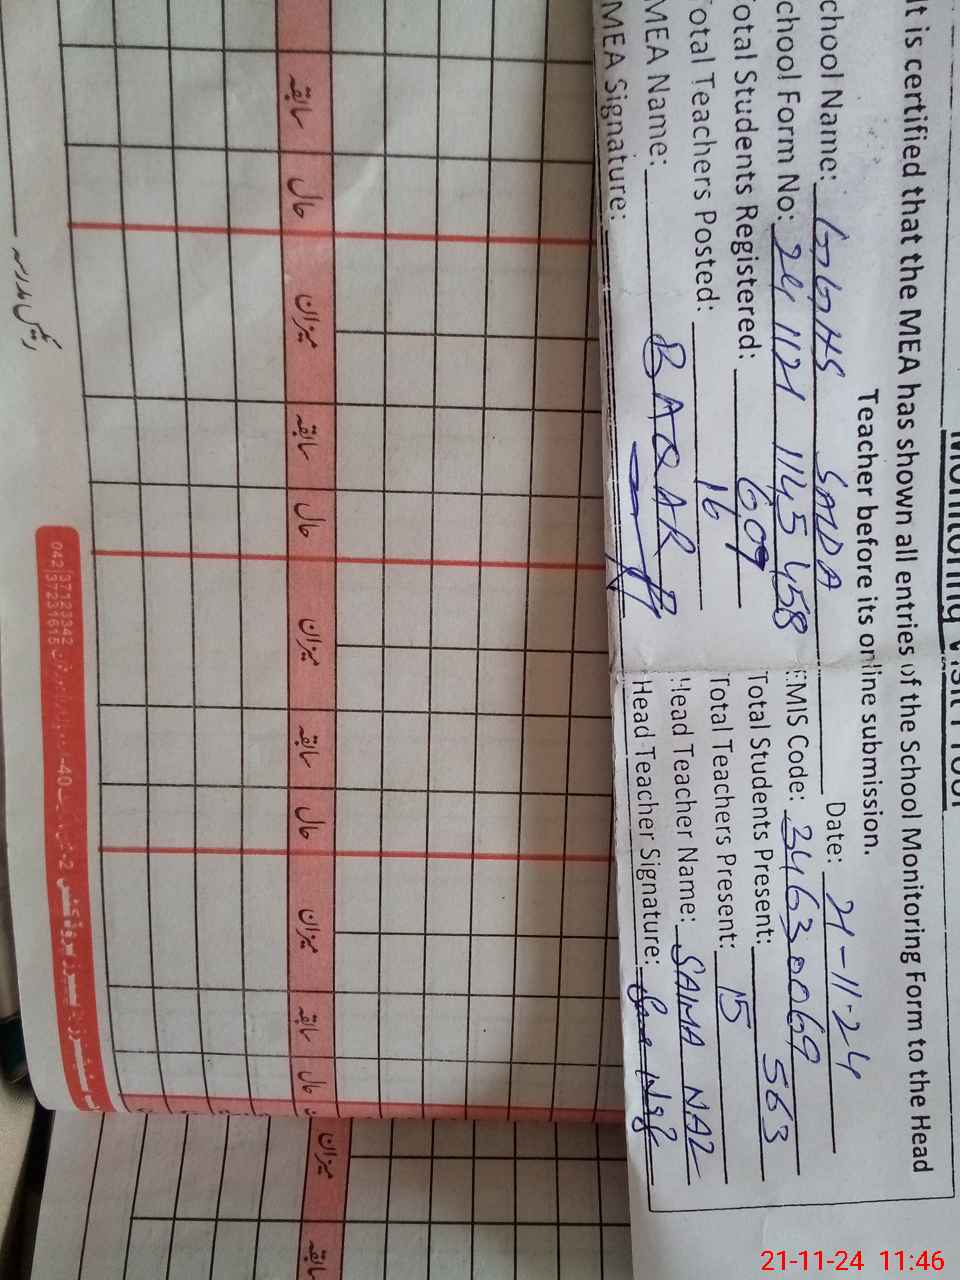 Monitoring Visit Proof
It is certified that the MEA has shown all entries of the School Monitoring Form to the Head
Teacher before its online submission.
chool Name: GGHS SADDA Date: 21-11-24
chool Form No: 241121 1145 458 EMIS Code: 34630069
Total Students Registered: 609 Total Students Present: 563
Total Teachers Posted: 16 Total Teachers Present: 15
MEA Name: BAQAR Head Teacher Name: SAIMA NAZ
MEA Signature: Head Teacher Signature:
سابقہ حال میزان سابقہ حال میزان سابقہ حال میزان سابقہ حال
میزان سابقہ
042/37123342
37231615
21-11-24 11:46